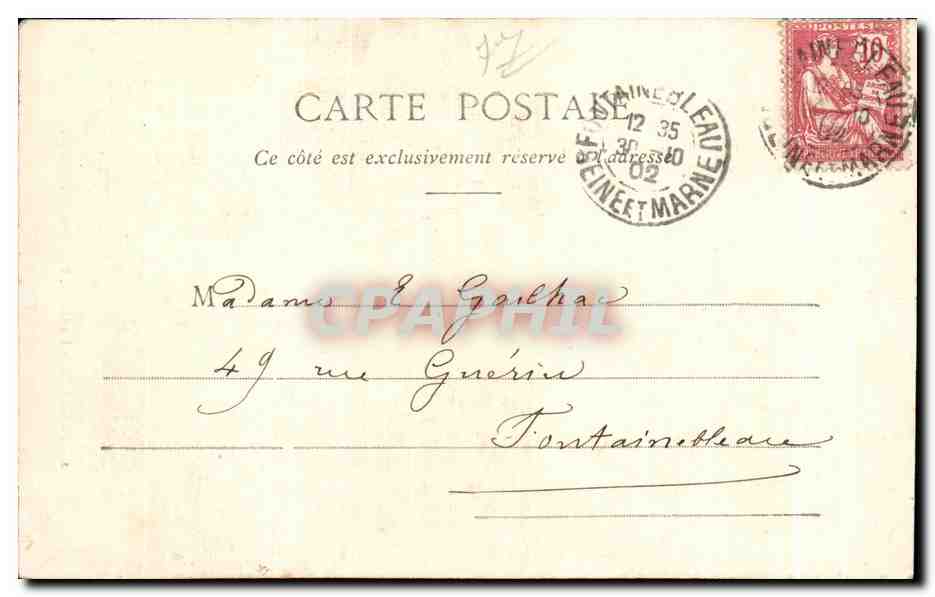 POSTES
10
CARTE POSTALE
Ce côté est exclusivement réservé à l'adresse
FONTAINEBLEAU
12 35
30 -10
02
SEINE ET MARNE
Madame E Gailhac
CPAPHIL
49 rue Guérin
Fontainebleau